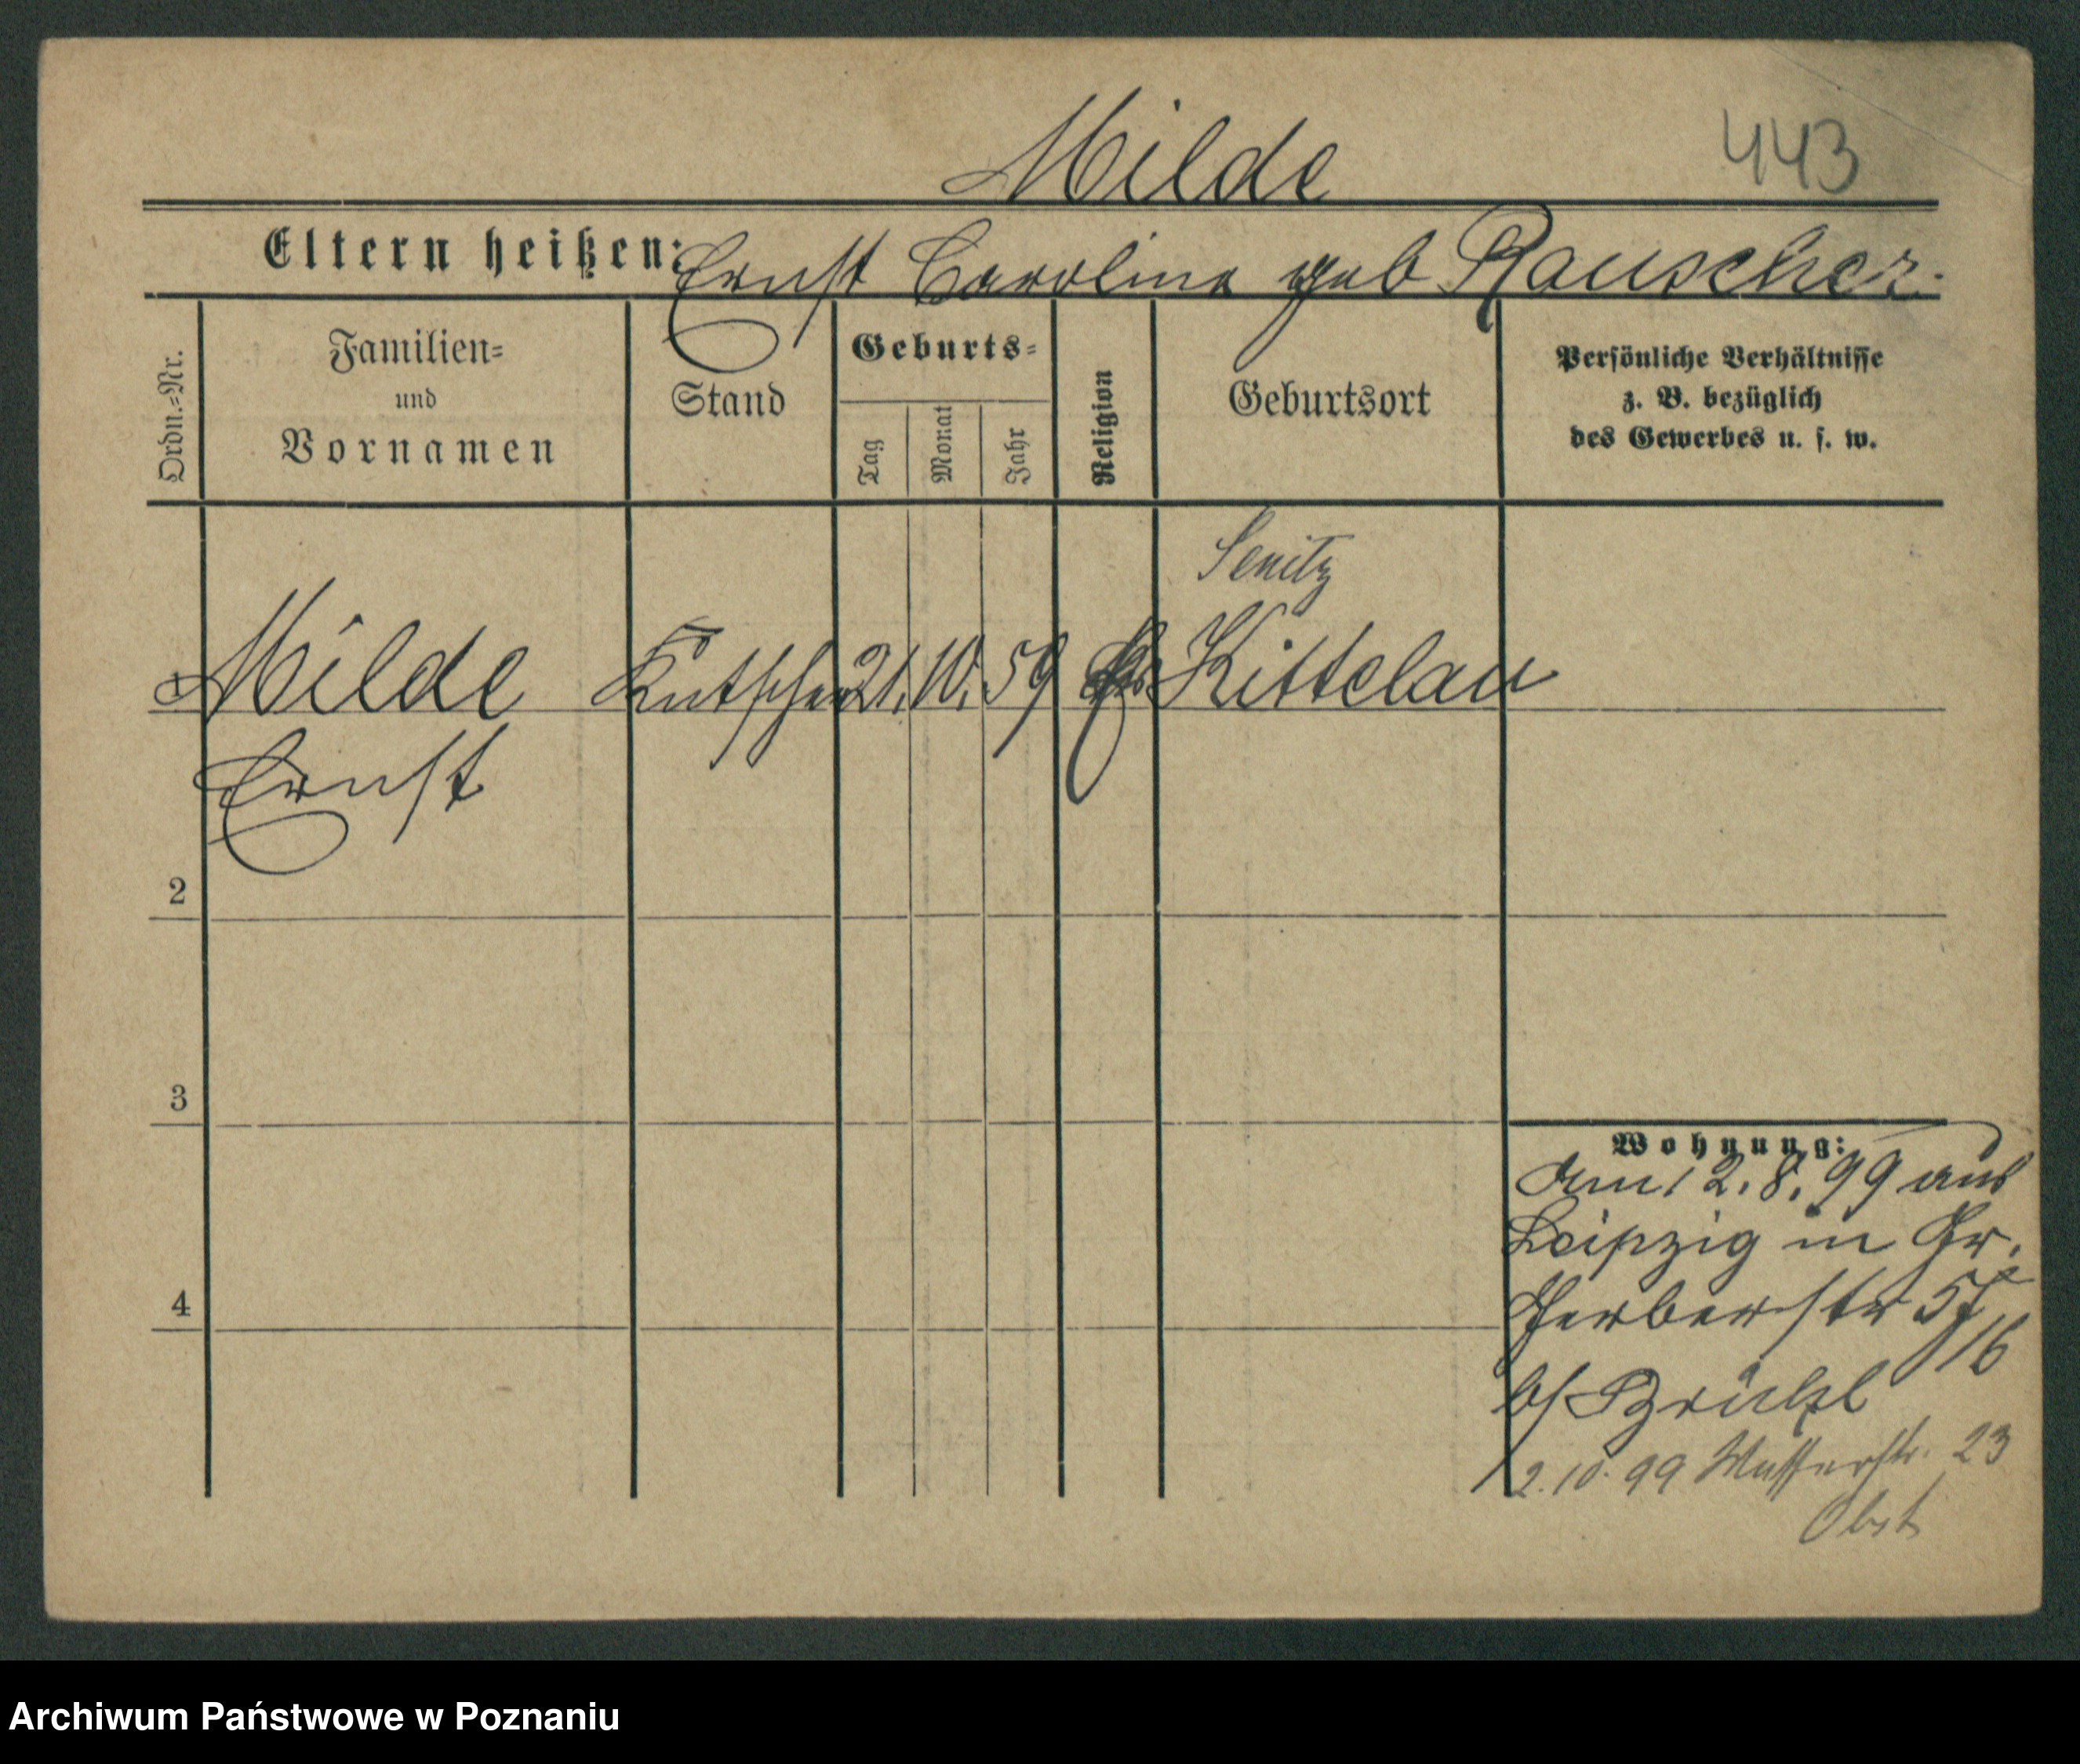 Milde 443
Eltern heißen: Ernst Caroline geb Rauscher.
Ordn.-Nr.
Familien-
und
Vornamen
Stand
Geburts-
Tag
Monat
Jahr
Religion
Geburtsort
Persönliche Verhältnisse
z. B. bezüglich
des Gewerbes u. s. w.
Senitz
1 Milde Kutscher 21. 10. 59 Kittelau
Ernst
2
3
4
Wohnung:
Am 12.8.99 aus
Leipzig in Gr.
Gerberstr
16
b/
2.10.99 Wasserstr. 23
Obst
Archiwum Państwowe w Poznaniu